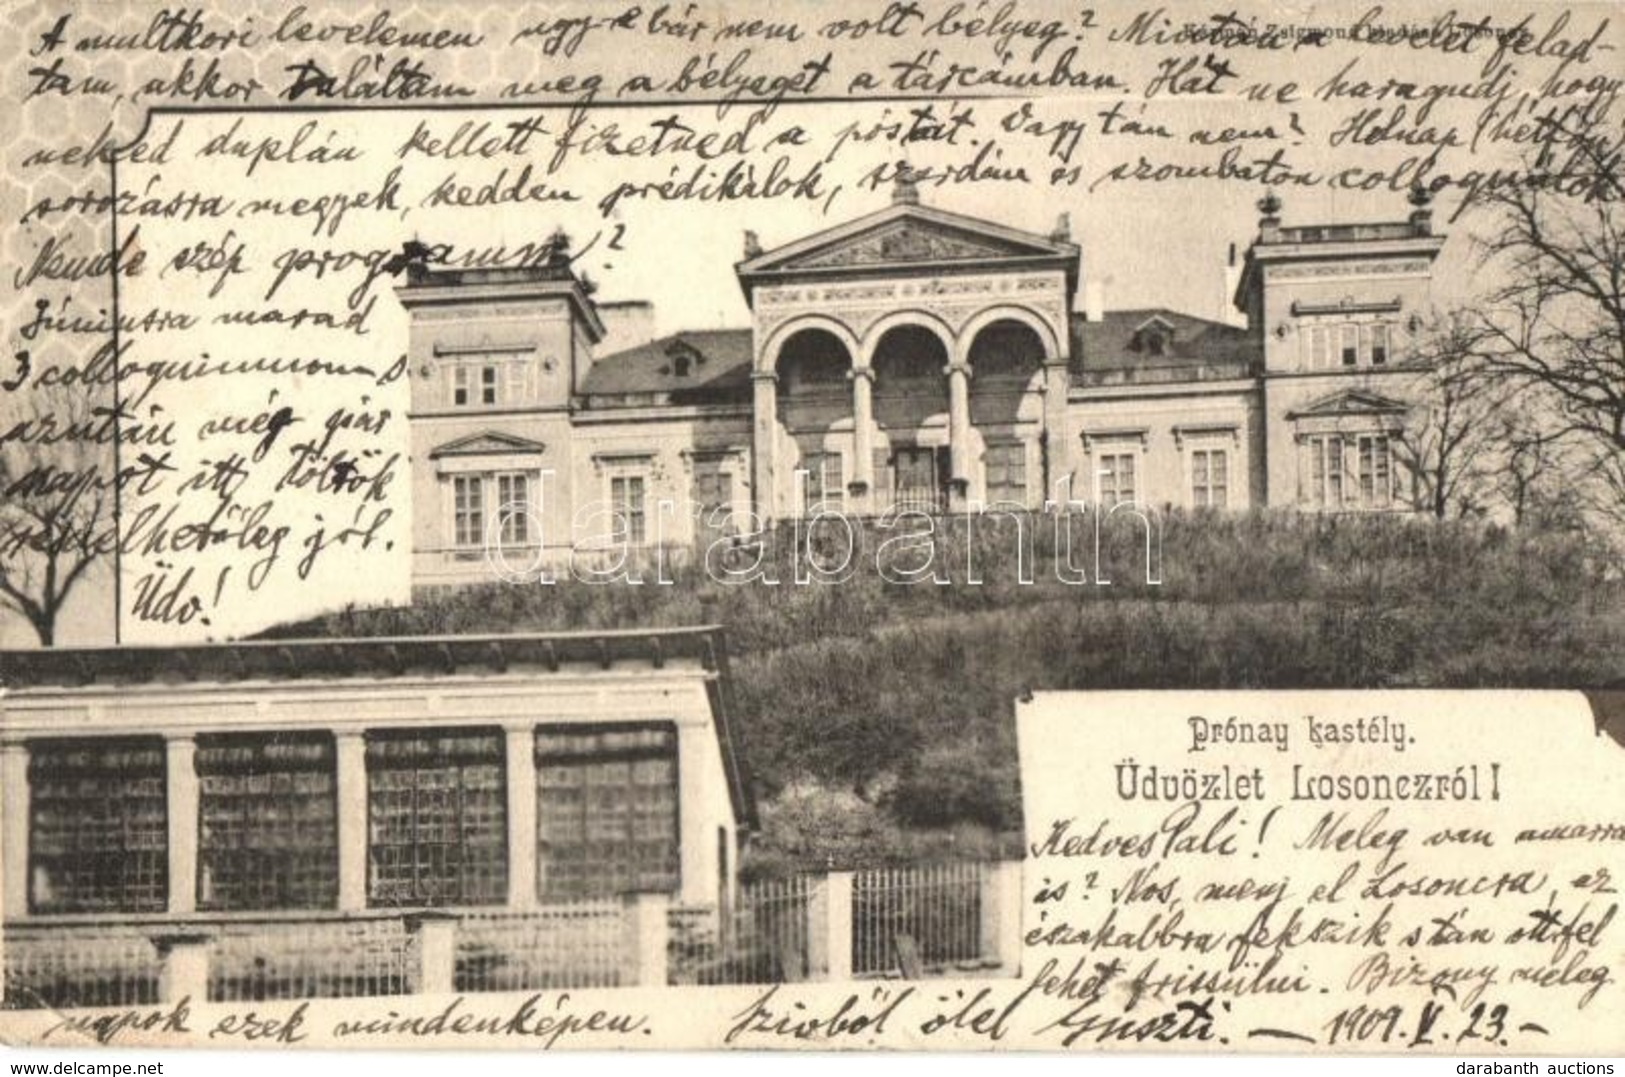 A multkori levelemen ugy-e bár nem volt bélyeg? Mintán a levelet felad-
tam, akkor találtam meg a bélyeget a tárcámban. Hát ne haragudj, hogy
neked duplán kellett fizetned a póstát. Vagy tán nem? Holnap (hétfőn)
sorozásra megyek, kedden prédikálok, szerdán és szombaton colloquálok
Nemde szép programm?
Júniusra marad
3 colloquiummom s
azután még pár
napot itt töltök
remélhetőleg jól.
Üdv!
darabanth
Prónay kastély.
Üdvözlet Losonczról!
Kedves Pali! Meleg van amarra
is? Nos, menj el Losoncra, az
északabbra fekszik s tán ott fel
lehet frissülni. Bizony meleg
napok ezek mindenképen. Szivből ölel Guszti. — 1909. V. 23. —
darabanth auctions
www.darabanth.com